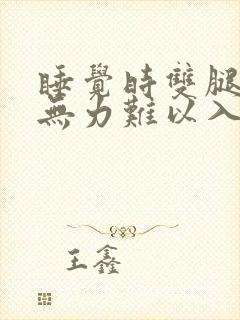 睡覺時雙腿
無力難以入
王鑫